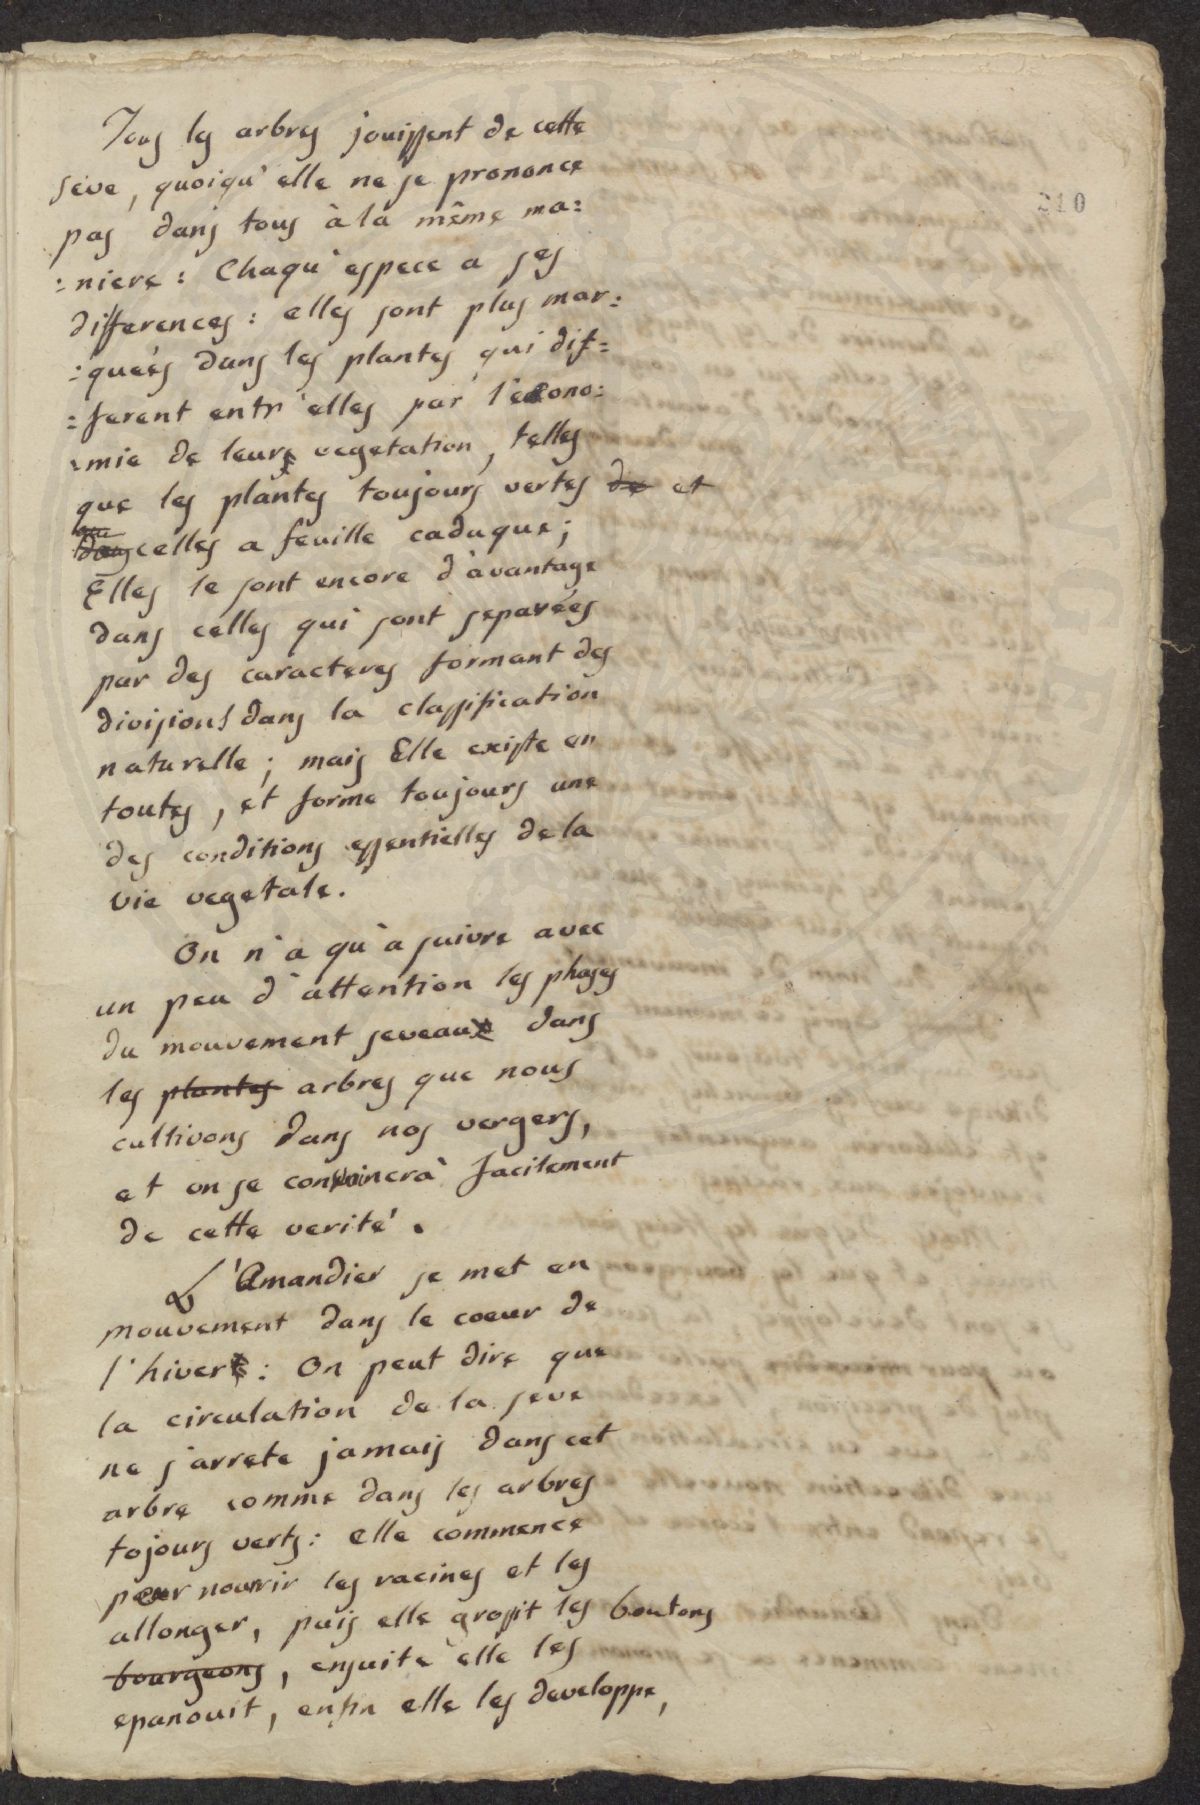 210
Tous les arbres jouissent de cette
seve, quoiqu'elle ne se prononce
pas dans tous à la même ma:
:niere: Chaqu'espece a ses
differences: elles sont plus mar:
:queés dans les plantes qui dif=
=ferent entr'elles par l'écono:
:mie de leurs vegetation, telles
que les plantes toujours vertes de et
dans celles a feuille caduque;
Elles le sont encore d'àvantage
dans celles qui sont separées
par des caracteres formant des
divisions dans la classification
naturelle; mais Elle existe en
toutes, et forme toujours une
des conditions essentielles de la
vie vegetale.
On n'a qu'à suivre avec
un peu d'attention les phases
du mouvement seveaux dans
les plantes arbres que nous
cultivons dans nos vergers,
et on se convaincrà facilement
de cette verité.
L'Amandier se met en
mouvement dans le coeur de
l'hiver: On peut dire que
la circulation de la seve
ne s'arrete jamais dans cet
arbre comme dans les arbres
tojours verts: elle commence
pour nourrir les racines et les
allonger, puis elle grossit les boutons
bourgeons, ensuite elle les
epanouit, enfin elle les developpe,